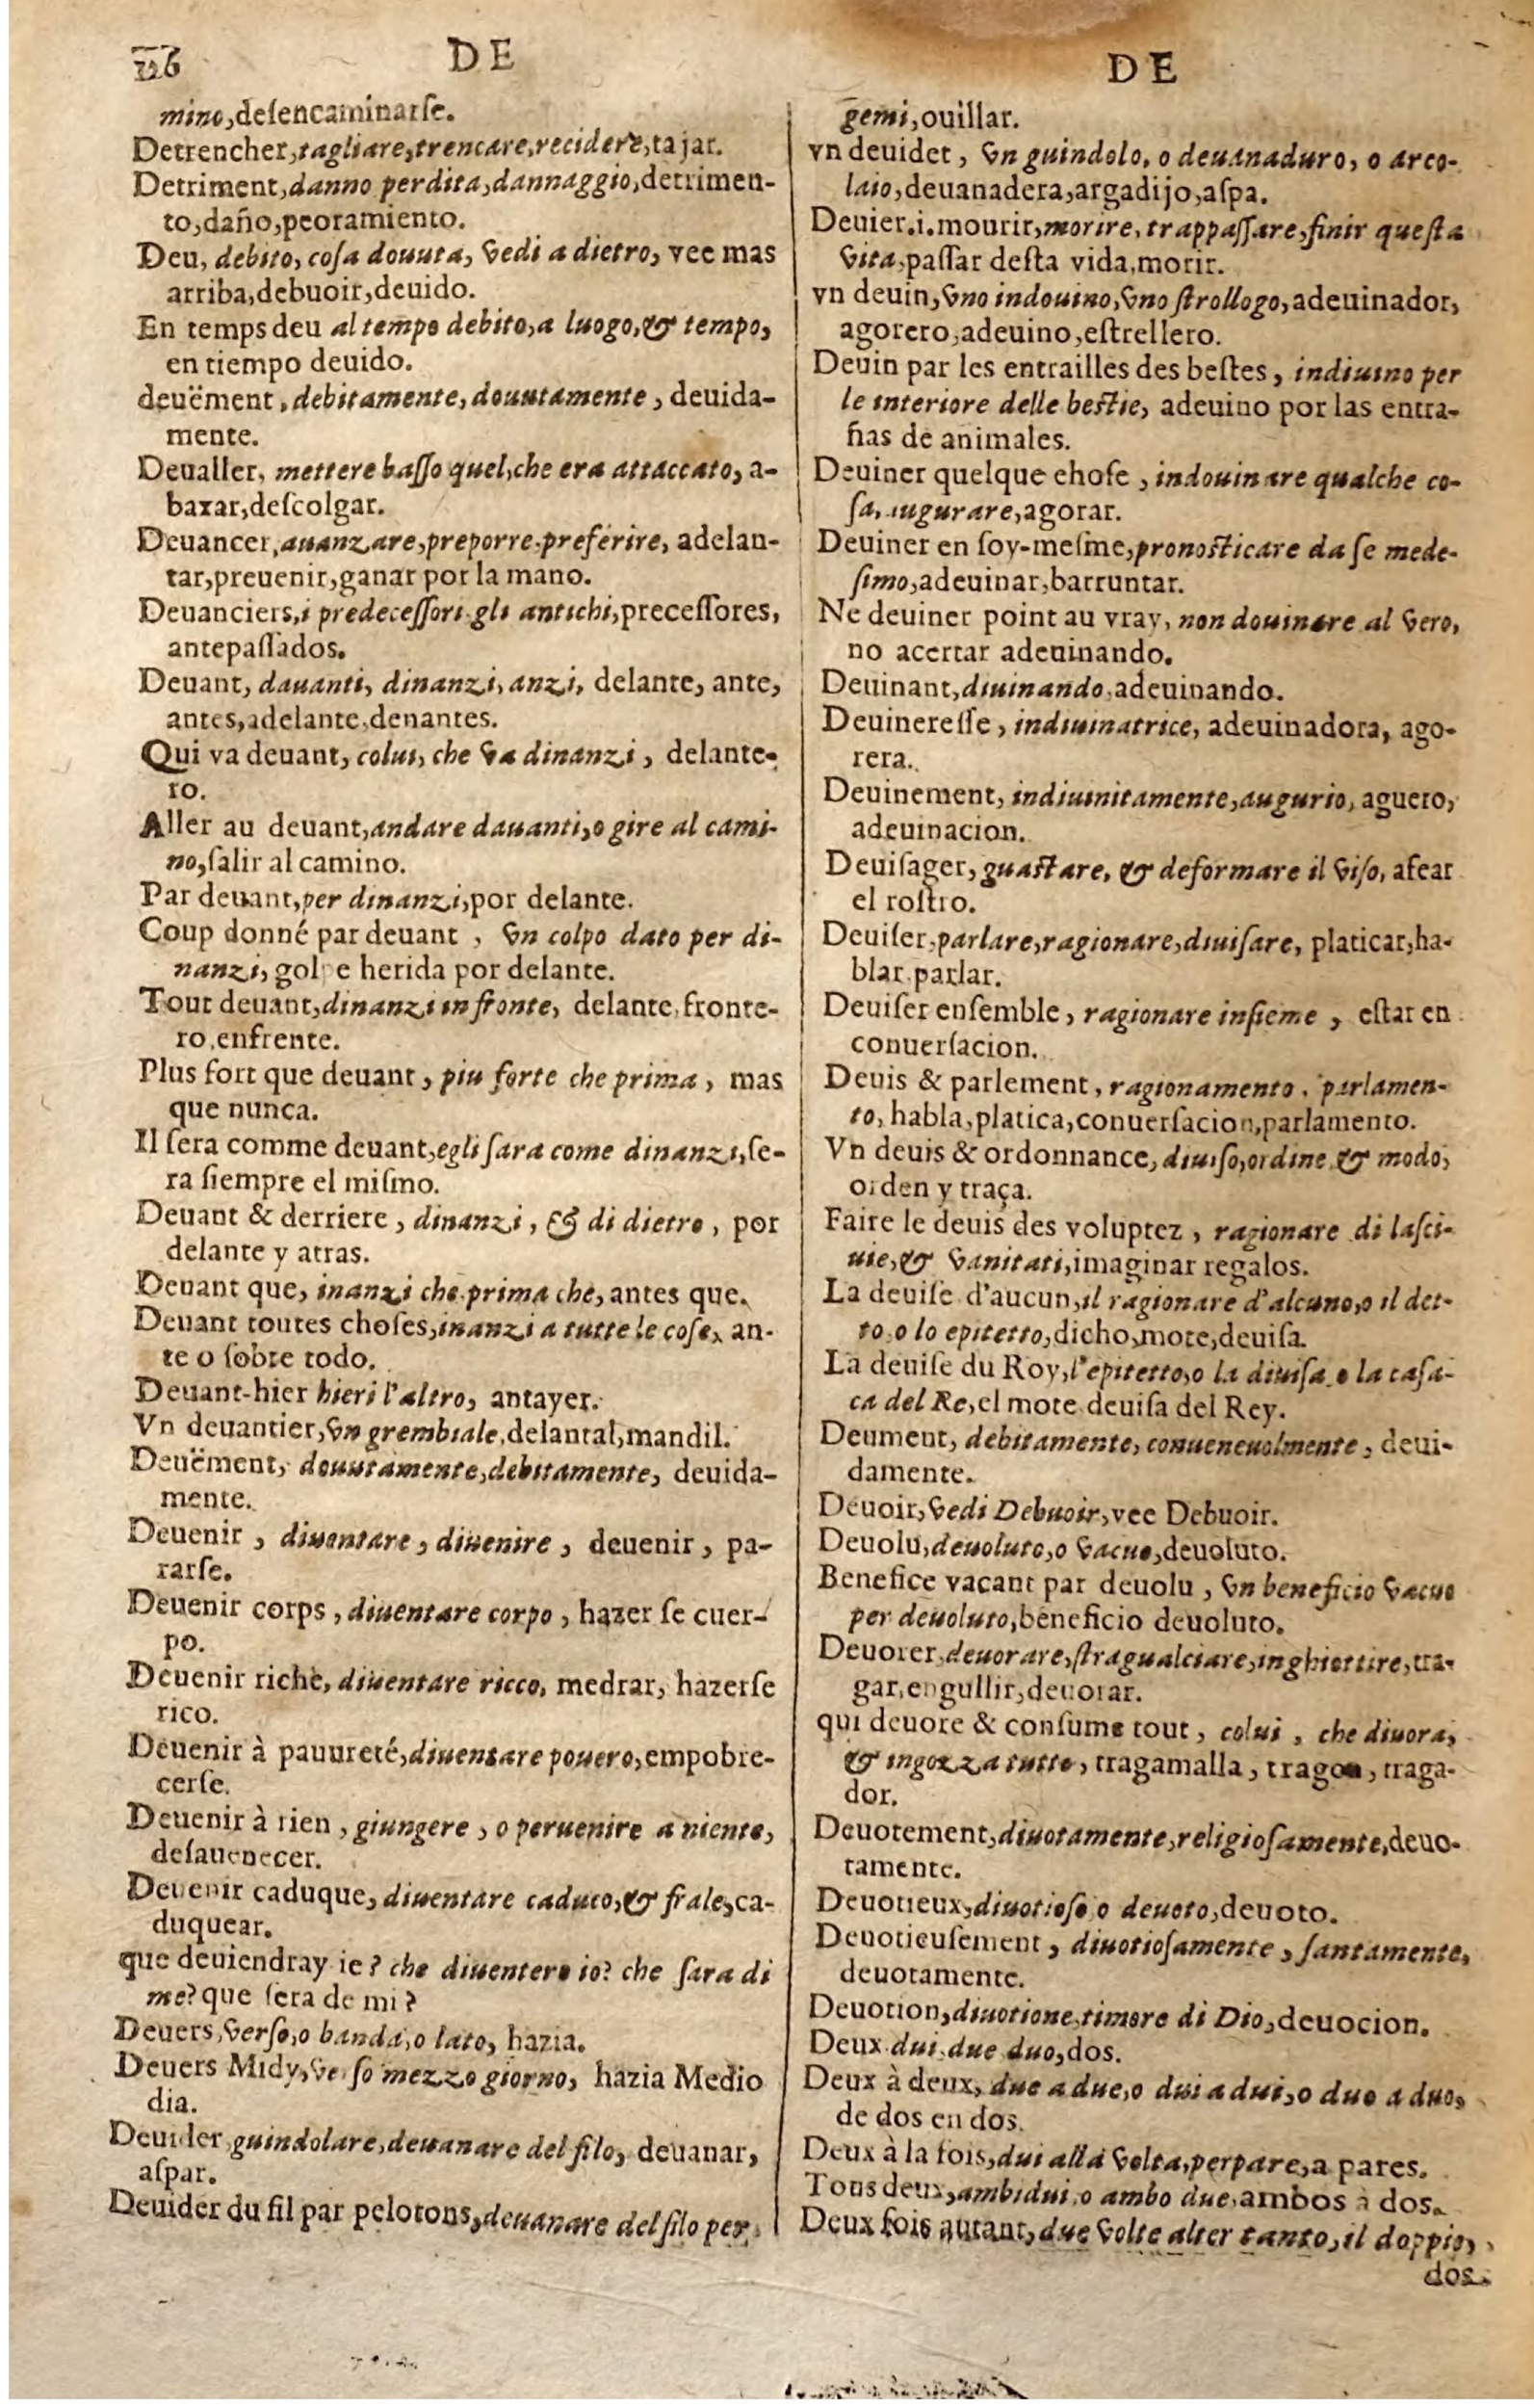 DE
mino,desencaminarse.
Detrencher,tagliare,trencare,recidere,tajar.
Detriment,danno perdita,dannaggio,detrimen-
to,daño,peoramiento.
Deu, debito, cosa douuta, vedi a dietro, vee mas
arriba,debuoir,deuido.
En temps deu al tempo debito,a luogo,& tempo,
en tiempo deuido.
deuëment, debitamente, douutamente, deuida-
mente.
Deualler, mettere basso quel,che era attaccato, a-
baxar,descolgar.
Deuancer,auanzare,preporre,preferire, adelan-
tar,preuenir,ganar por la mano.
Deuanciers,i predecessori gli antichi,precessores,
antepassados.
Deuant, dauanti, dinanzi, anzi, delante, ante,
antes,adelante,denantes.
Qui va deuant, colui, che va dinanzi, delante-
ro.
Aller au deuant,andare dauanti,o gire al cami-
no,salir al camino.
Par deuant,per dinanzi,por delante.
Coup donné par deuant, vn colpo dato per di-
nanzi, golpe herida por delante.
Tout deuant,dinanzi in fronte, delante,fronte-
ro,enfrente.
Plus fort que deuant, piu forte che prima, mas
que nunca.
Il sera comme deuant,egli sara come dinanzi,se-
ra siempre el mismo.
Deuant & derriere, dinanzi, & di dietro, por
delante y atras.
Deuant que, inanzi che prima che, antes que.
Deuant toutes choses,inanzi a tutte le cose, an-
te o sobre todo.
Deuant-hier hieri l'altro, antayer.
Vn deuantier,vn grembiale,delantal,mandil.
Deuëment, douutamente,debitamente, deuida-
mente.
Deuenir, diuentare, diuenire, deuenir, pa-
rarse.
Deuenir corps, diuentare corpo, hazer se cuer-
po.
Deuenir riche, diuentare ricco, medrar, hazerse
rico.
Deuenir à pauureté,diuentare pouero,empobre-
cerse.
Deuenir à rien, giungere, o peruenire a niente,
desauenecer.
Deuenir caduque, diuentare caduco,& frale,ca-
duquear.
que deuiendray ie? che diuentero io? che sara di
me? que sera de mi?
Deuers,verso,o banda,o lato, hazia.
Deuers Midy,verso mezzo giorno, hazia Medio
dia.
Deuider guindolare,deuanare del filo, deuanar,
aspar.
Deuider du fil par pelotons,deuanare del filo per
DE
gemi,ouillar.
vn deuidet, vn guindolo, o deuanaduro, o arco-
laio,deuanadera,argadijo,aspa.
Deuier.i.mourir,morire, trappassare,finir questa
vita,passar desta vida,morir.
vn deuin,vno indouino,vno strollogo,adeuinador,
agorero,adeuino,estrellero.
Deuin par les entrailles des bestes, indiuino per
le interiore delle bestie, adeuino por las entra-
ñas de animales.
Deuiner quelque chose, indouinare qualche co-
sa, augurare,agorar.
Deuiner en soy-mesme,pronosticare da se mede-
simo,adeuinar,barruntar.
Ne deuiner point au vray, non douinare al vero,
no acertar adeuinando.
Deuinant,diuinando,adeuinando.
Deuineresse, indiuinatrice, adeuinadora, ago-
rera.
Deuinement, indiuinitamente,augurio, aguero,
adeuinacion.
Deuisager, guastare, & deformare il viso, afear
el rostro.
Deuiser,parlare,ragionare,diuisare, platicar,ha-
blar parlar.
Deuiser ensemble, ragionare insieme, estar en
conuersacion.
Deuis & parlement, ragionamento, parlamen-
to, habla,platica,conuersacion,parlamento.
Vn deuis & ordonnance, diuiso,ordine & modo,
orden y traça.
Faire le deuis des voluptez, ragionare di lasci-
uie,& vanitati,imaginar regalos.
La deuise d'aucun,il ragionare d'alcuno,o il det-
to o lo epitetto,dicho,mote,deuisa.
La deuise du Roy,l'epitetto,o la diuisa o la casa-
ca del Re,el mote deuisa del Rey.
Deument, debitamente, conueneuolmente, deui-
damente.
Deuoir,vedi Debuoir,vee Debuoir.
Deuolu,deuoluto,o vacuo,deuoluto.
Benefice vacant par deuolu, vn beneficio vacuo
per deuoluto,beneficio deuoluto.
Deuorer,deuorare,stragualciare,inghiottire,tra-
gar,engullir,deuorar.
qui deuore & consume tout, colui, che diuora,
& ingozza tutto, tragamalla, tragon, traga-
dor.
Deuotement,diuotamente,religiosamente,deuo-
tamente.
Deuotieux,diuotioso o deuoto,deuoto.
Deuotieusement, diuotiosamente, santamente,
deuotamente.
Deuotion,diuotione,timore di Dio,deuocion.
Deux dui,due duo,dos.
Deux à deux, due a due,o dui a dui,o duo a duo,
de dos en dos.
Deux à la fois,dui alla volta,perpare,a pares.
Tous deux,ambidui,o ambo due,ambos à dos.
Deux fois autant,due volte alter tanto,il doppio,
dos